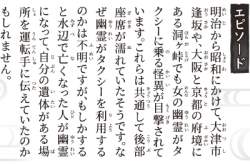 エピソード
明治から昭和にかけて、大津市
逢坂や、大阪と京都の府境に
ある洞ヶ峠でも女の幽霊がタ
クシーに乗る怪異が目撃されて
います。これらは共通して後部
座席が濡れていたそうです。な
ぜ幽霊がタクシーを利用する
のかは不明ですが、もしかする
と水辺で亡くなった人が幽霊
になって、自分の遺体がある場
所を運転手に伝えていたのか
もしれません。